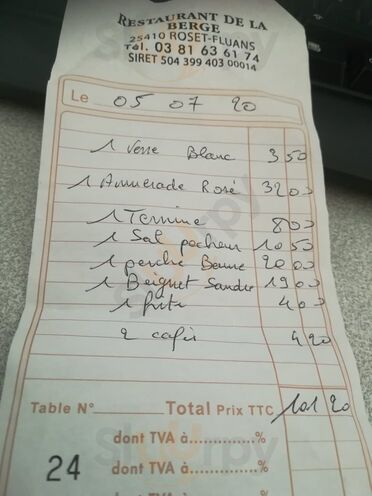 RESTAURANT DE LA
BERGE
25410 ROSET-FLUANS
Tél. 03 81 63 61 74
SIRET 504 399 403 00014
Le 05 07 20
1 Verre Blanc 3 50
1 Rosé 32 00
1 Terrine 8 00
1 Sal pecheur 10 50
1 perche 20 00
1 Beignet Sandre 19 00
1 frite 4 00
2 cafés 4 20
Table N° Total Prix TTC 101 20
dont TVA à..............%
24 dont TVA à..............%
dont TVA à..............%